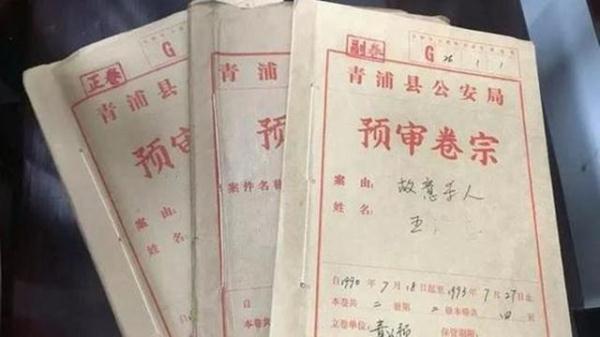 正卷
G
青浦县
预审
案由:
姓名:
预
案件名称
自
本卷共
副卷
G 26 1 1
青浦县公安局
预审卷宗
案由: 故意杀人
姓名: 王
自1990年7月18日起至1993年7月27日止
本卷共二册第二册本册共 页
立卷单位: 保管期限: